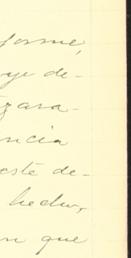 forme,
ye de-
zara-
ncia
este de-
hecho,
n que